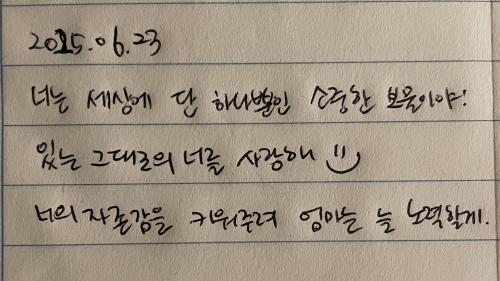 2025.06.23
너는 세상에 단 하나뿐인 소중한 보물이야!
있는 그대로의 너를 사랑해
너의 자존감을 키워주려 엄마는 늘 노력할게.